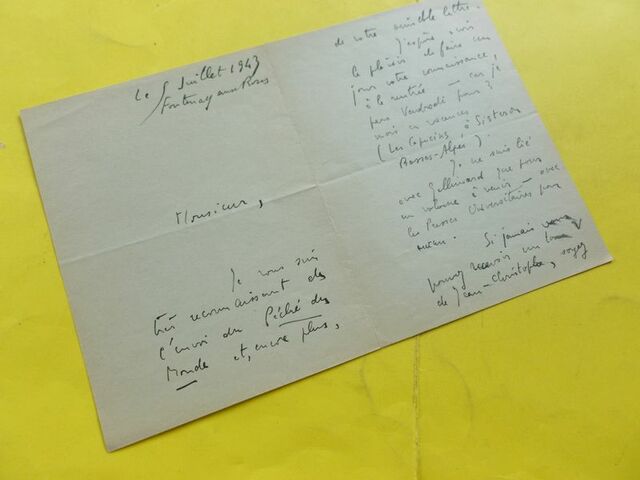 Le 5 Juillet 1943
Fontenay aux Roses
Monsieur,
Je vous suis
très reconnaissant de
l'envoi du Péché du
Monde et, encore plus,
de votre sensible lettre.
J'espère avoir
le plaisir de faire un
jour votre connaissance,
à la rentrée — car je
pars Vendredi pour 3
mois en vacances
(Les Capucins, à Sisteron
Basses-Alpes).
Je ne suis lié
avec Gallimard que pour
un volume à venir — avec
les Presses Universitaires pour
aucun. Si jamais vous
pouvez recevoir un tome
de Jean-Christophe, soyez